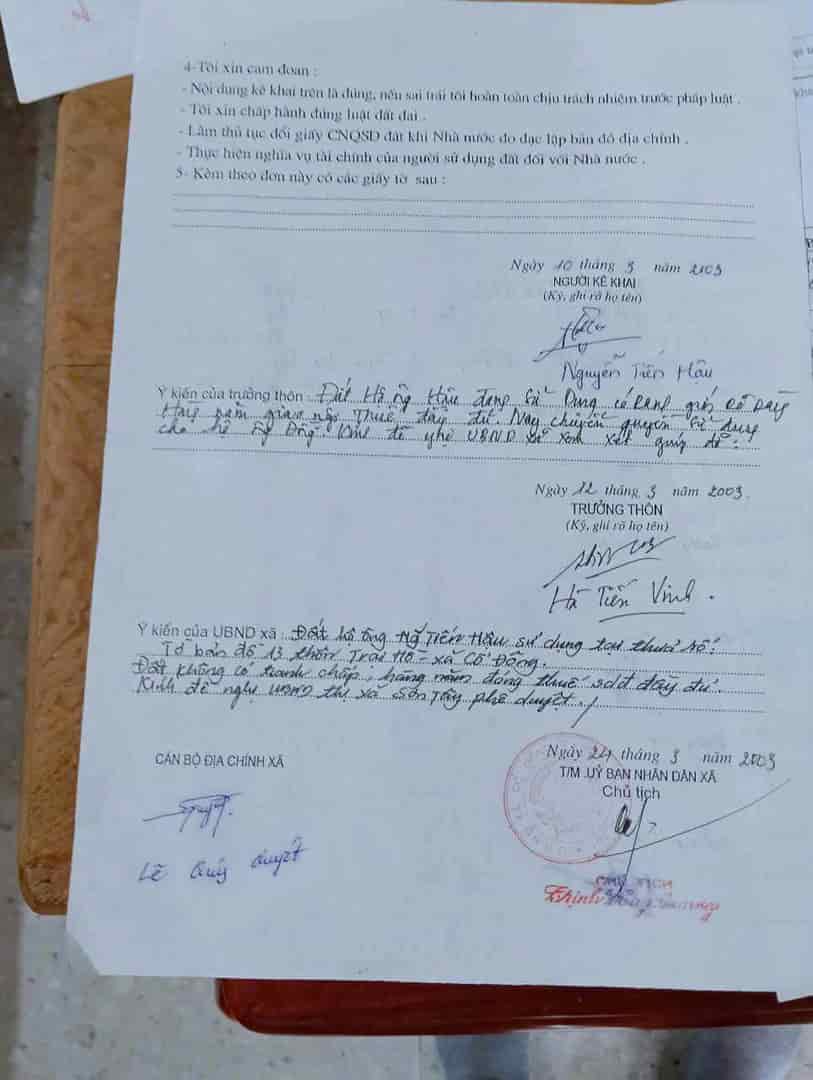 4-Tôi xin cam đoan :
- Nội dung kê khai trên là đúng, nếu sai trái tôi hoàn toàn chịu trách nhiệm trước pháp luật .
- Tôi xin chấp hành đúng luật đất đai .
- Làm thủ tục đổi giấy CNQSD đất khi Nhà nước đo đạc lập bản đồ địa chính .
- Thực hiện nghĩa vụ tài chính của người sử dụng đất đối với Nhà nước .
5- Kèm theo đơn này có các giấy tờ sau :
Ngày 10 tháng 3 năm 2003
NGƯỜI KÊ KHAI
(Ký, ghi rõ họ tên)
Nguyễn Tiến Hậu
Ý kiến của trưởng thôn : Đất Hộ ông Hậu đang sử Dụng có Ranh giới
Hàng năm giao nộp Thuế đầy đủ. Nay chuyển quyền sử dụng
cho hộ đề nghị UBND xã xem xét giúp đỡ.
Ngày 12 tháng 3 năm 2003.
TRƯỞNG THÔN
(Ký, ghi rõ họ tên)
Hà Tiến Vinh .
Ý kiến của UBND xã : Đất hộ ông Ng Tiến Hậu sử dụng tại thửa số:
Tờ bản đồ 13 thôn Trại Hồ - xã Cổ Đông.
Đất không có tranh chấp, hàng năm đóng thuế sdđ đầy đủ.
Kính đề nghị UBND thị xã Sơn Tây phê duyệt.
CÁN BỘ ĐỊA CHÍNH XÃ
Lê Quý Quyết
Ngày 24 tháng 3 năm 2003
T/M .UỶ BAN NHÂN DÂN XÃ
Chủ tịch
CHỦ TỊCH
Trịnh